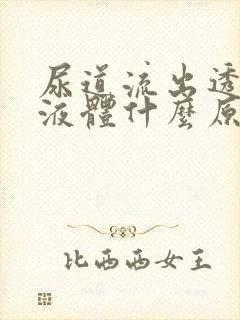 尿道流出透
液體什麼原
比西西女王